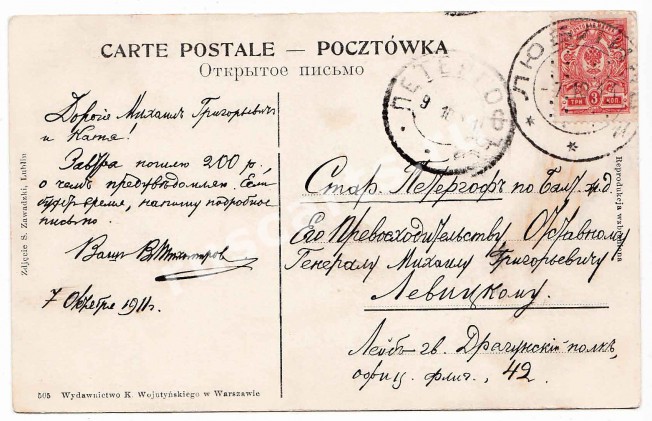 CARTE POSTALE — POCZTÓWKA
Открытое письмо
Дорогіе Михаилъ Григорьевичъ
и Катя!
Завтра пошлю 200 р.,
о чемъ предувѣдомляю. Если
будетъ время, напишу подробное
письмо.
Вашъ
7 Октября 1911 г.
ПЕТЕРГОФЪ
9
3
ТРИ
КОП
Стар. Петергофъ по Балт. ж.д.
Его Превосходительству Отставному
Генералу Михаилу Григорьевичу
Левицкому.
Лейбъ гв. Драгунскій полкъ,
офиц. флиг., 42.
Zdjęcie S. Zawadzki, Lublin
Reprodukcja wzbroniona
505 Wydawnictwo K. Wojutyńskiego w Warszawie